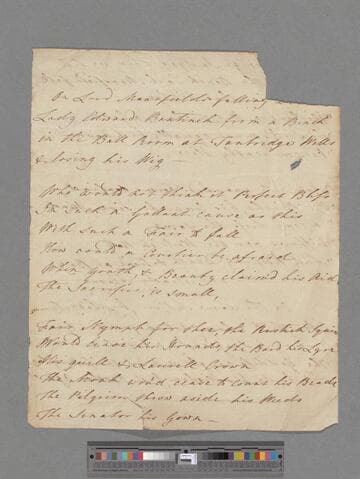 On Lord Mansfield's falling
Lady Edward Bentinck from a Bench
in the Ball Room at Tunbridge Wells
& losing his Wig —
Who would not think it Perfect Bliss
In such a Gallant cause as this
With such a Fair to fall
How could a Courtier be afraid
When youth & Beauty claim'd his Aid
The Sacrifice, is small,
Fair Nymph for thee, the Rustick Squire
Would leave his Hounds, the Bard his Lyre
His quill & Laurell Crown
The Monk wou'd cease to count his Beads
The Pilgrim throw aside his Weeds
The Senator his Gown —